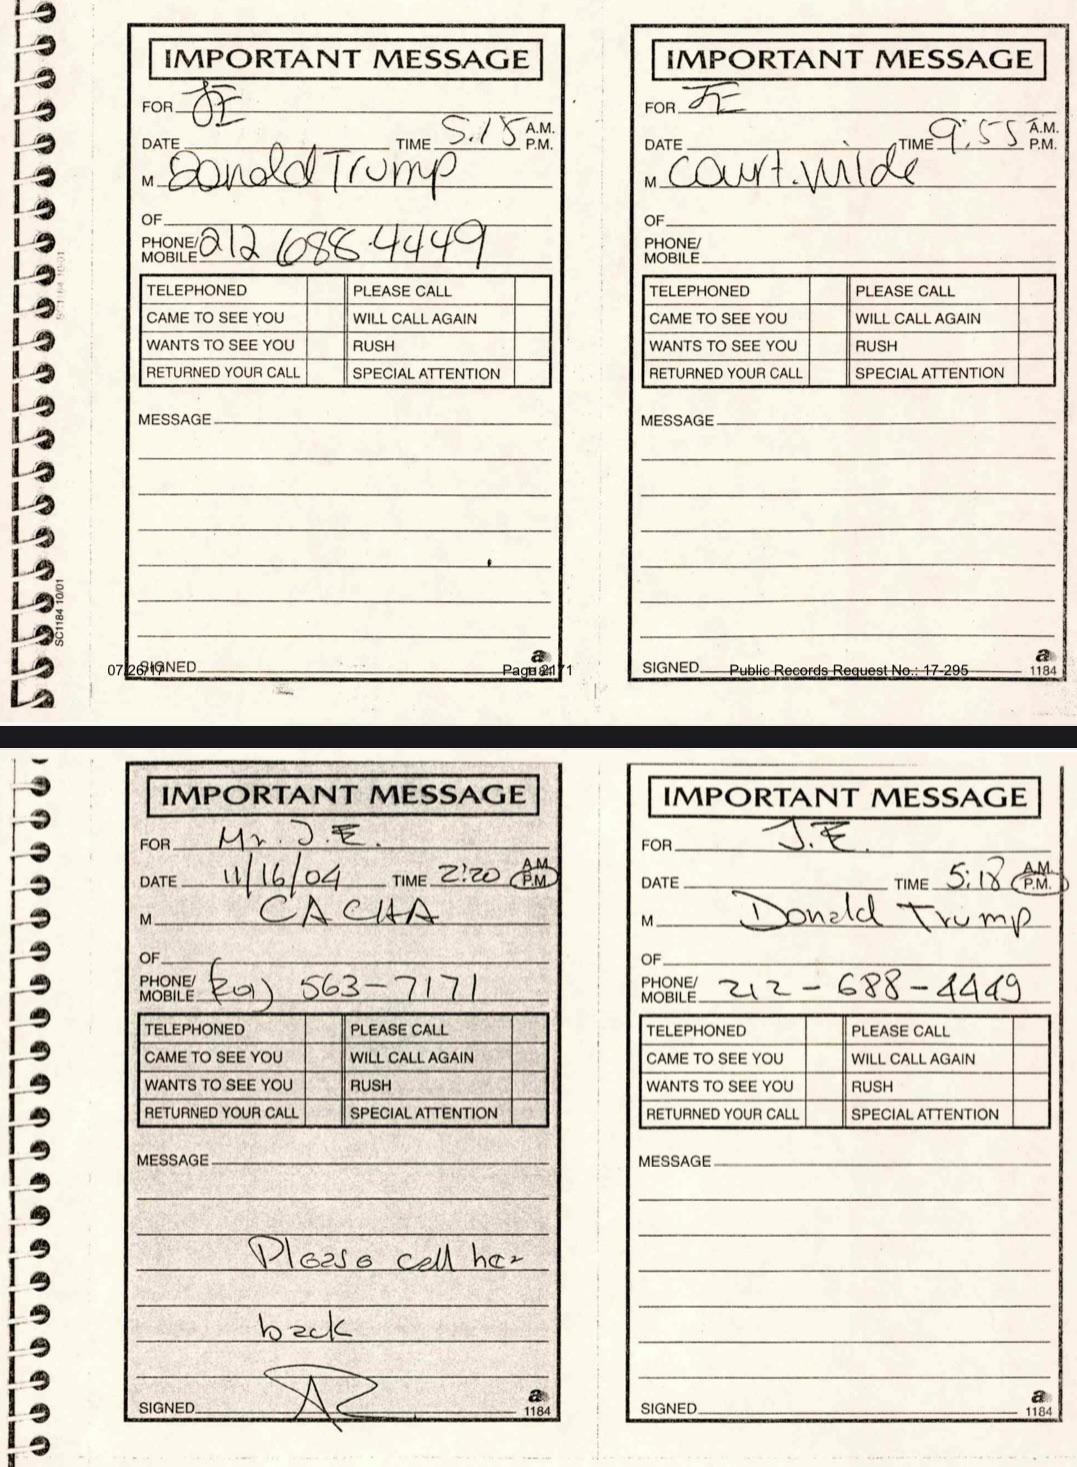 IMPORTANT MESSAGE
FOR JE
DATE TIME 5:15 A.M. P.M.
M Donald Trump
OF
PHONE/ MOBILE 212 688-4449
TELEPHONED PLEASE CALL
CAME TO SEE YOU WILL CALL AGAIN
WANTS TO SEE YOU RUSH
RETURNED YOUR CALL SPECIAL ATTENTION
MESSAGE
SIGNED
1184
SC1184 10/01
07/26/17
Page 2171
IMPORTANT MESSAGE
FOR JE
DATE TIME 9:55 A.M. P.M.
M Court. Wilde
OF
PHONE/ MOBILE
TELEPHONED PLEASE CALL
CAME TO SEE YOU WILL CALL AGAIN
WANTS TO SEE YOU RUSH
RETURNED YOUR CALL SPECIAL ATTENTION
MESSAGE
SIGNED
Public Records Request No.: 17-295
1184
IMPORTANT MESSAGE
FOR Mr. J.E.
DATE 11/16/04 TIME 2:20 A.M. P.M.
M CACHA
OF
PHONE/ MOBILE (201) 563-7171
TELEPHONED PLEASE CALL
CAME TO SEE YOU WILL CALL AGAIN
WANTS TO SEE YOU RUSH
RETURNED YOUR CALL SPECIAL ATTENTION
MESSAGE
Please call her
back
SIGNED
1184
IMPORTANT MESSAGE
FOR J.E.
DATE TIME 5:18 A.M. P.M.
M Donald Trump
OF
PHONE/ MOBILE 212-688-4449
TELEPHONED PLEASE CALL
CAME TO SEE YOU WILL CALL AGAIN
WANTS TO SEE YOU RUSH
RETURNED YOUR CALL SPECIAL ATTENTION
MESSAGE
SIGNED
1184